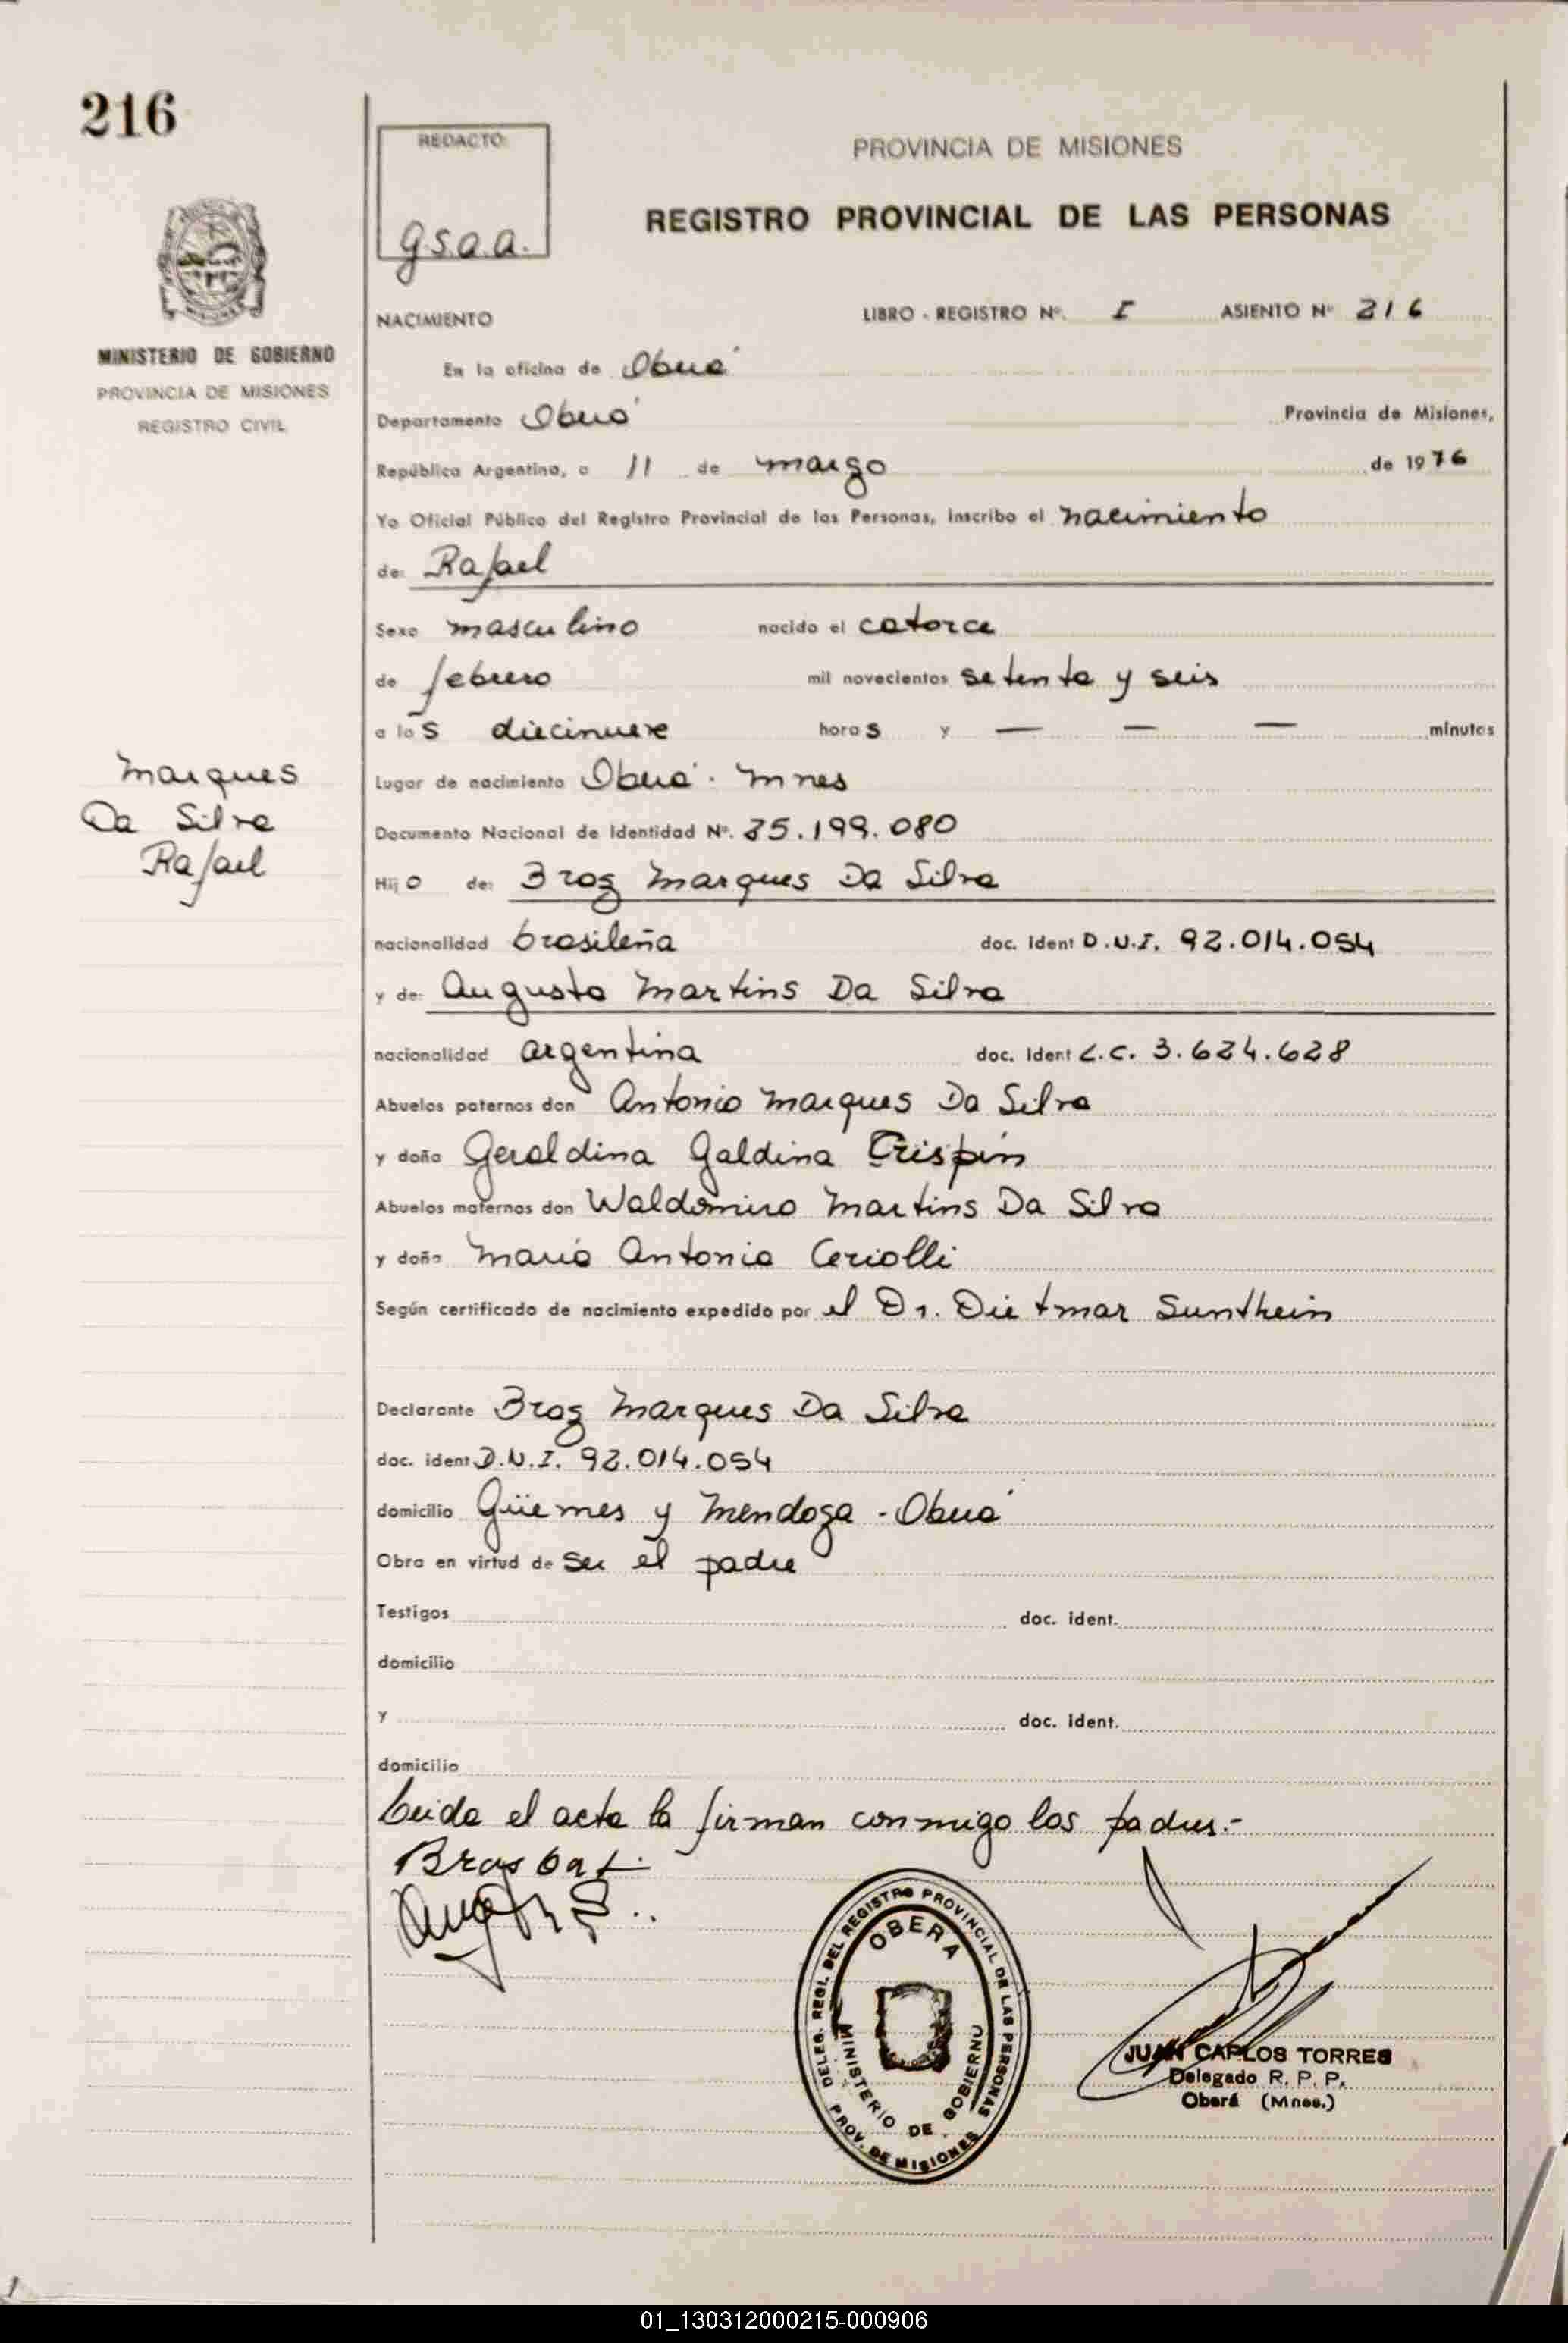 216
REDACTO:
g.s.a.a.
PROVINCIA DE MISIONES
REGISTRO PROVINCIAL DE LAS PERSONAS
MINISTERIO DE GOBIERNO
PROVINCIA DE MISIONES
REGISTRO CIVIL
NACIMIENTO LIBRO - REGISTRO Nº. I ASIENTO Nº 216
En la oficina de Oberá
Departamento Oberá Provincia de Misiones,
República Argentina, a 11 de marzo de 1976
Yo Oficial Público del Registro Provincial de las Personas, inscribo el nacimiento
de: Rafael
Sexo masculino nacido el catorce
de febrero mil novecientos setenta y seis
a las diecinueve horas y — — — minutos
Marques
Da Silva
Rafael
Lugar de nacimiento Oberá - Mnes
Documento Nacional de Identidad Nº. 25.199.080
Hijo de: Braz Marques Da Silva
nacionalidad brasileña doc. ident D.N.I. 92.014.054
y de: Augusta Martins Da Silva
nacionalidad argentina doc. ident L.C. 3.624.628
Abuelos paternos don Antonio Marques Da Silva
y doña Geraldina Galdina Crispin
Abuelos maternos don Waldomiro Martins Da Silva
y doña Maria Antonia Ceriolli
Según certificado de nacimiento expedido por el Dr. Dietmar Sunthein
Declarante Braz Marques Da Silva
doc. ident D.N.I. 92.014.054
domicilio Güemes y Mendoza - Oberá
Obra en virtud de ser el padre
Testigos doc. ident.
domicilio
y doc. ident.
domicilio
Leida el acta la firman conmigo los padres.-
DELEG. REGL. DEL REGISTRO PROVINCIAL DE LAS PERSONAS
OBERA
MINISTERIO DE GOBIERNO
PROV. DE MISIONES
JUAN CARLOS TORRES
Delegado R. P. P.
Oberá (Mnes.)
01_130312000215-000906